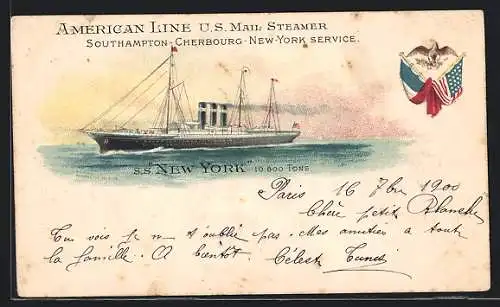 AMERICAN LINE U.S. MAIL STEAMER
SOUTHAMPTON-CHERBOURG-NEW-YORK SERVICE.
S.S "NEW YORK" 10.800 TONS
Paris 16 7bre 1900
Chère petite Blanche
Tu vois je n t'oublie pas. Mes amitiés à toute
la famille. A bientôt Céleste